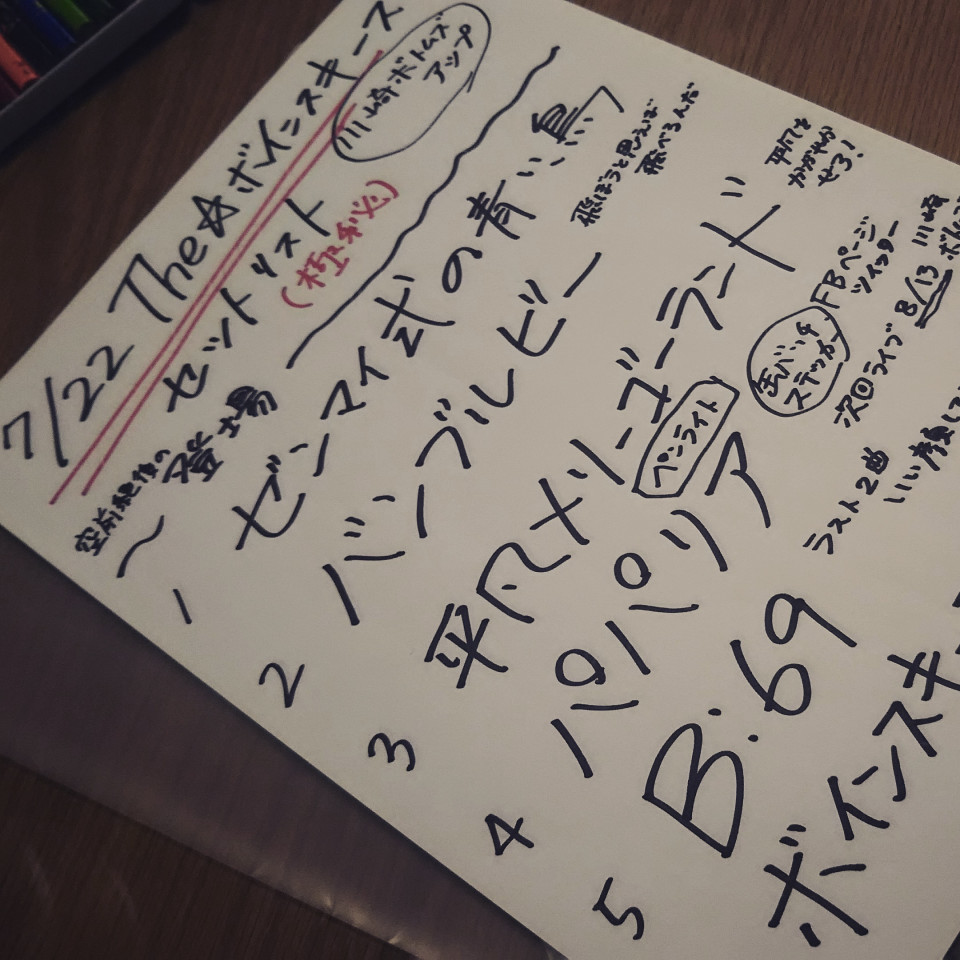 7/22 The☆ボインスキーズ
川崎ボトムズ
アップ
セットリスト
(極秘)
空前絶後の
登場
1 ゼンマイ式の青い鳥
2 バンブルビー
飛ぼうと思えば
飛べるんだ
3 平凡メリーゴーランド
平凡を
かがやか
せろ!
4 パパパリア
ペンライト
缶バッチ
ステッカー
FBページ
ツイッター
次回ライブ 8/13 川崎
ボトムズ
5 B:69
ラスト2曲
ボインスキ